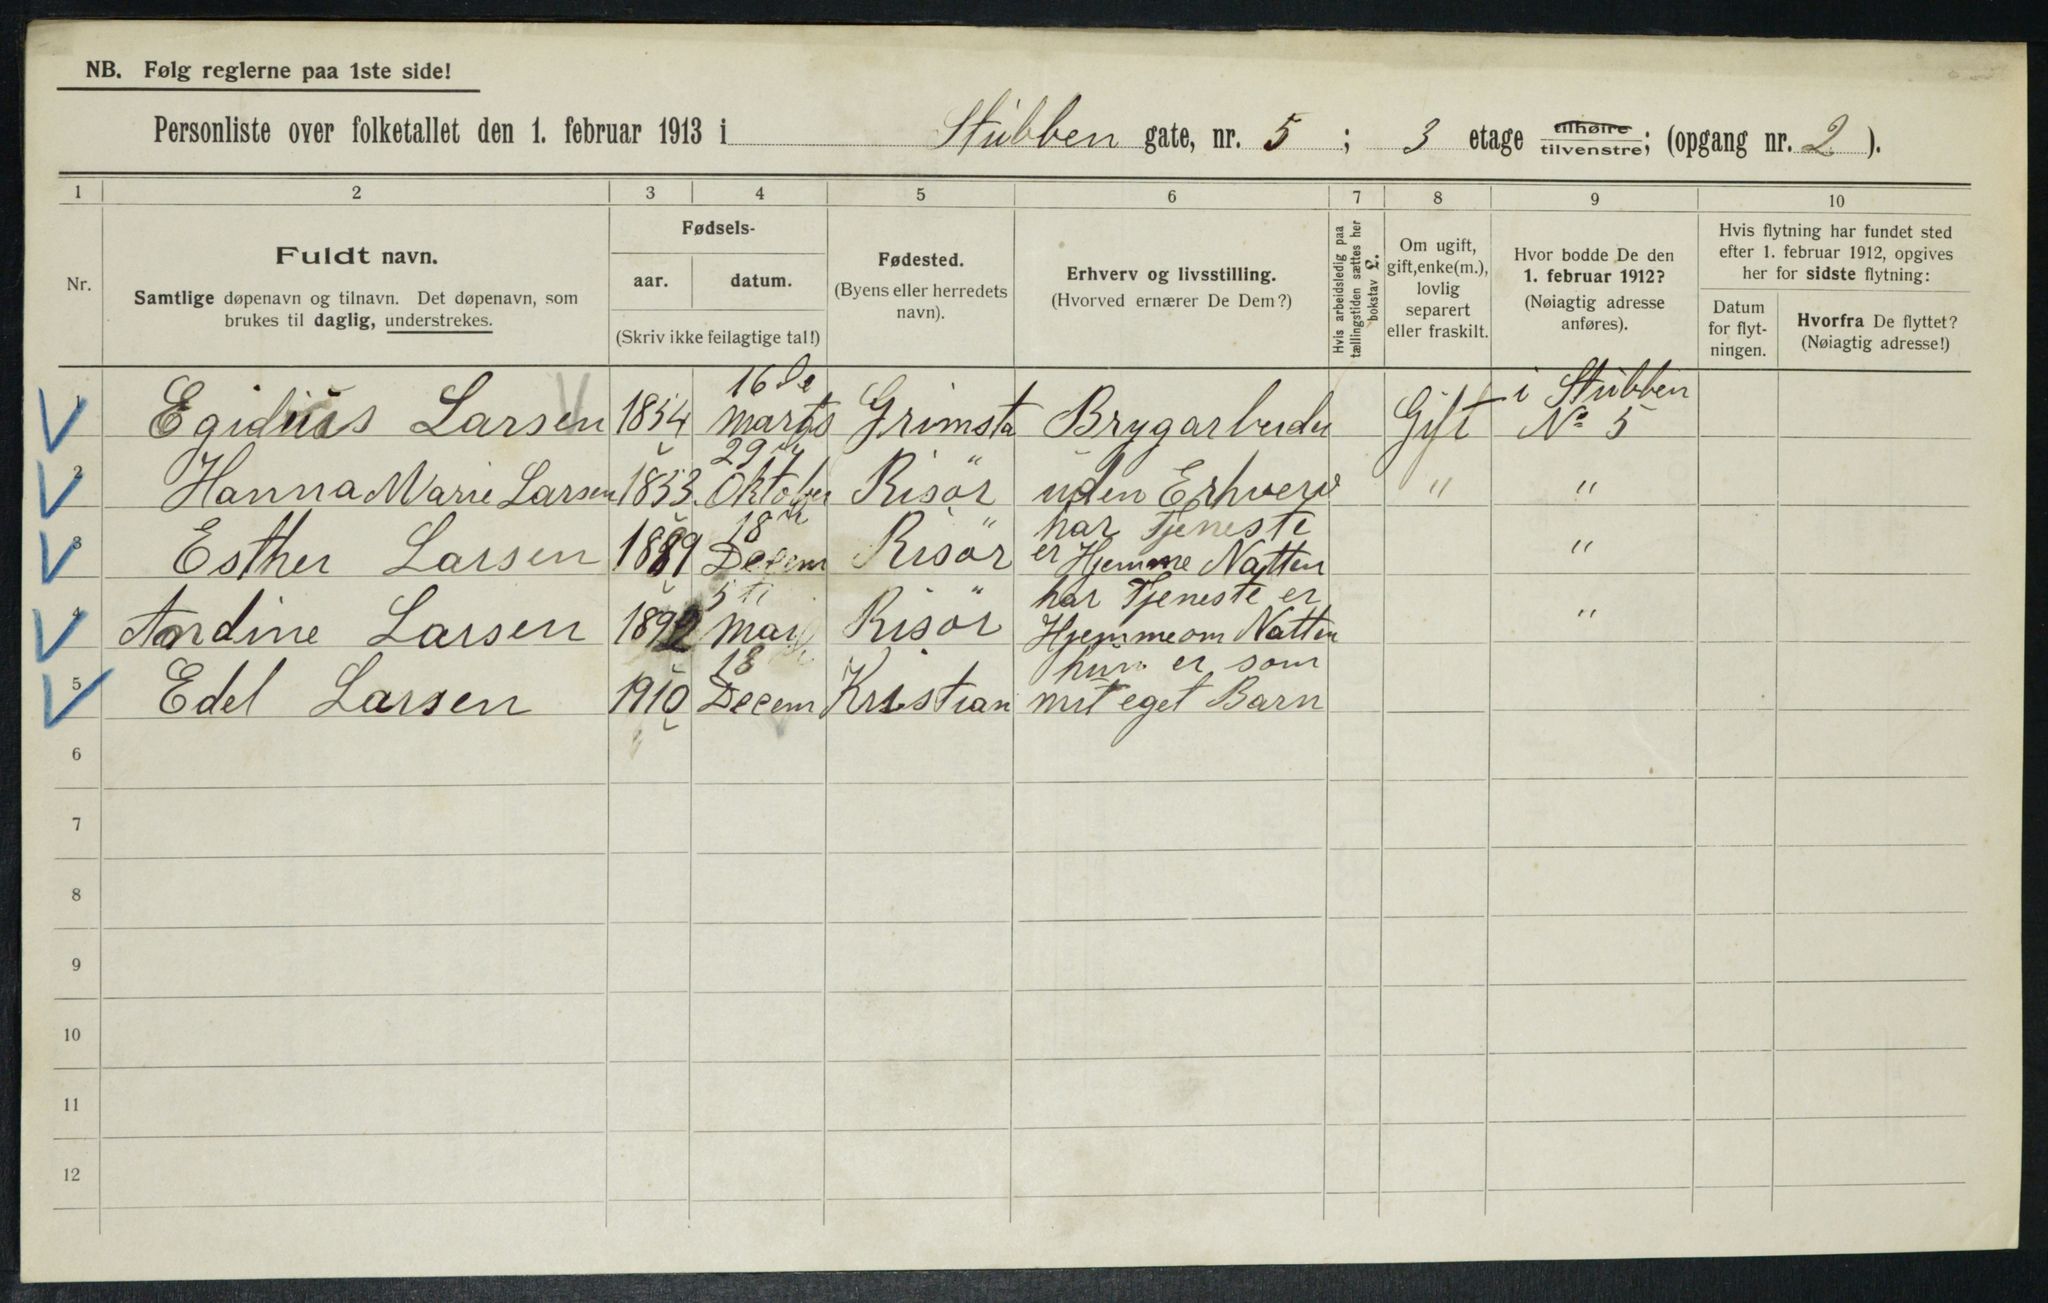 NB. Følg reglerne paa 1ste side!
Personliste over folketallet den 1. februar 1913 i Stubben gate, nr. 5 ; 3 etage tilhøire tilvenstre; (opgang nr. 2 ).
1 2 3 4 5 6 7 8 9 10
Nr.
Fuldt navn.
Samtlige døpenavn og tilnavn. Det døpenavn, som
brukes til daglig, understrekes.
Fødsels-
aar. datum.
(Skriv ikke feilagtige tal!)
Fødested.
(Byens eller herredets
navn).
Erhverv og livsstilling.
(Hvorved ernærer De Dem?)
Hvis arbeidsledig paa
tællingstiden sættes her
bokstav L.
Om ugift,
gift, enke(m.),
lovlig
separert
eller fraskilt.
Hvor bodde De den
1. februar 1912?
(Nøiagtig adresse
anføres).
Hvis flytning har fundet sted
efter 1. februar 1912, opgives
her for sidste flytning:
Datum
for flyt-
ningen.
Hvorfra De flyttet?
(Nøiagtig adresse!)
16de i Stubben
1 Egidius Larsen 1854 Marts Grimsta Brygarbeider Gift No 5
29
2 Hanna Marie Larsen 1853 Oktober Risör uden Erhverv " "
18 har Tjeneste
3 Esther Larsen 1889 Decem Risör er Hjemme Natten "
5te har Tjeneste er
4 Andine Larsen 1892 Mai Risör Hjemme om Natten "
18 hun er som
5 Edel Larsen 1910 Decem Kristian mit eget Barn
6
7
8
9
10
11
12